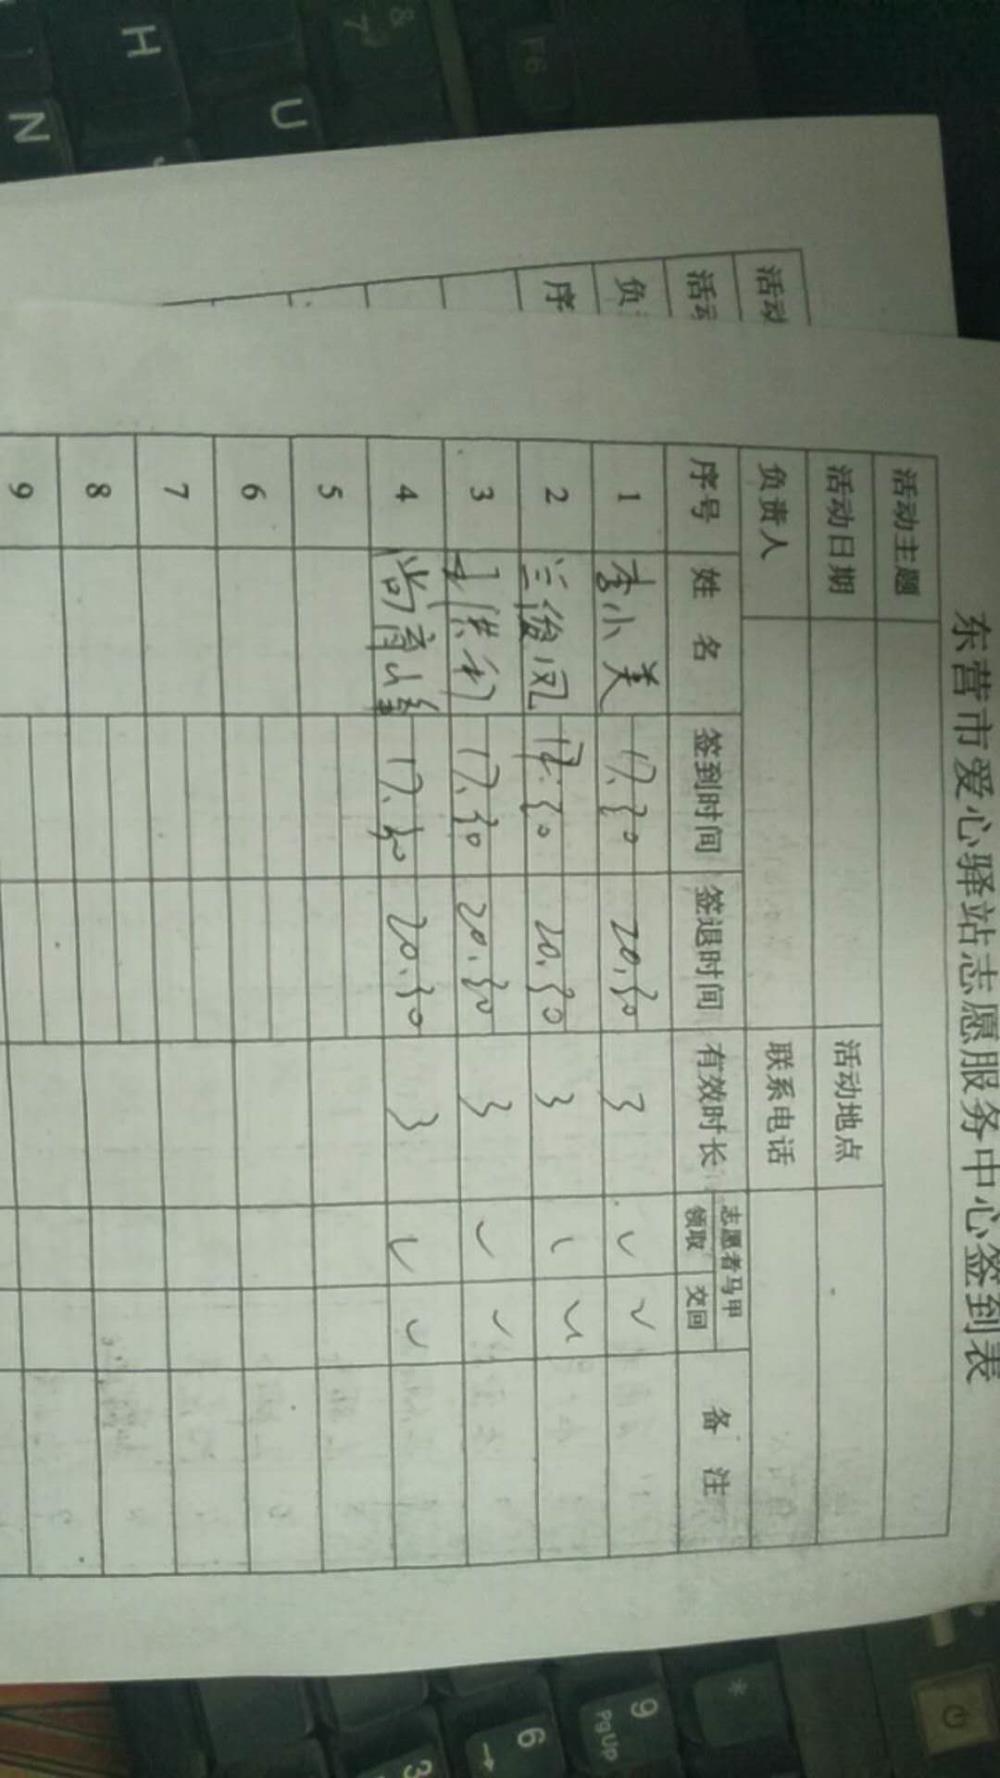 东营市爱心驿站志愿服务中心签到表
活动主题
活动日期 活动地点
负责人 联系电话
序号 姓 名 签到时间 签退时间 有效时长 志愿者马甲 备 注
领取 交回
1 李小美 17.30 20.30 3 ✓ ✓
2 兰俊凤 17.30 20.30 3 ✓ ✓
3 17.30 20.30 3 ✓ ✓
4 17.30 20.30 3 ✓ ✓
5
6
7
8
9
活动
活动
负
序
H
U
N
8
7
F6
*
9
PgUp
6
→
3